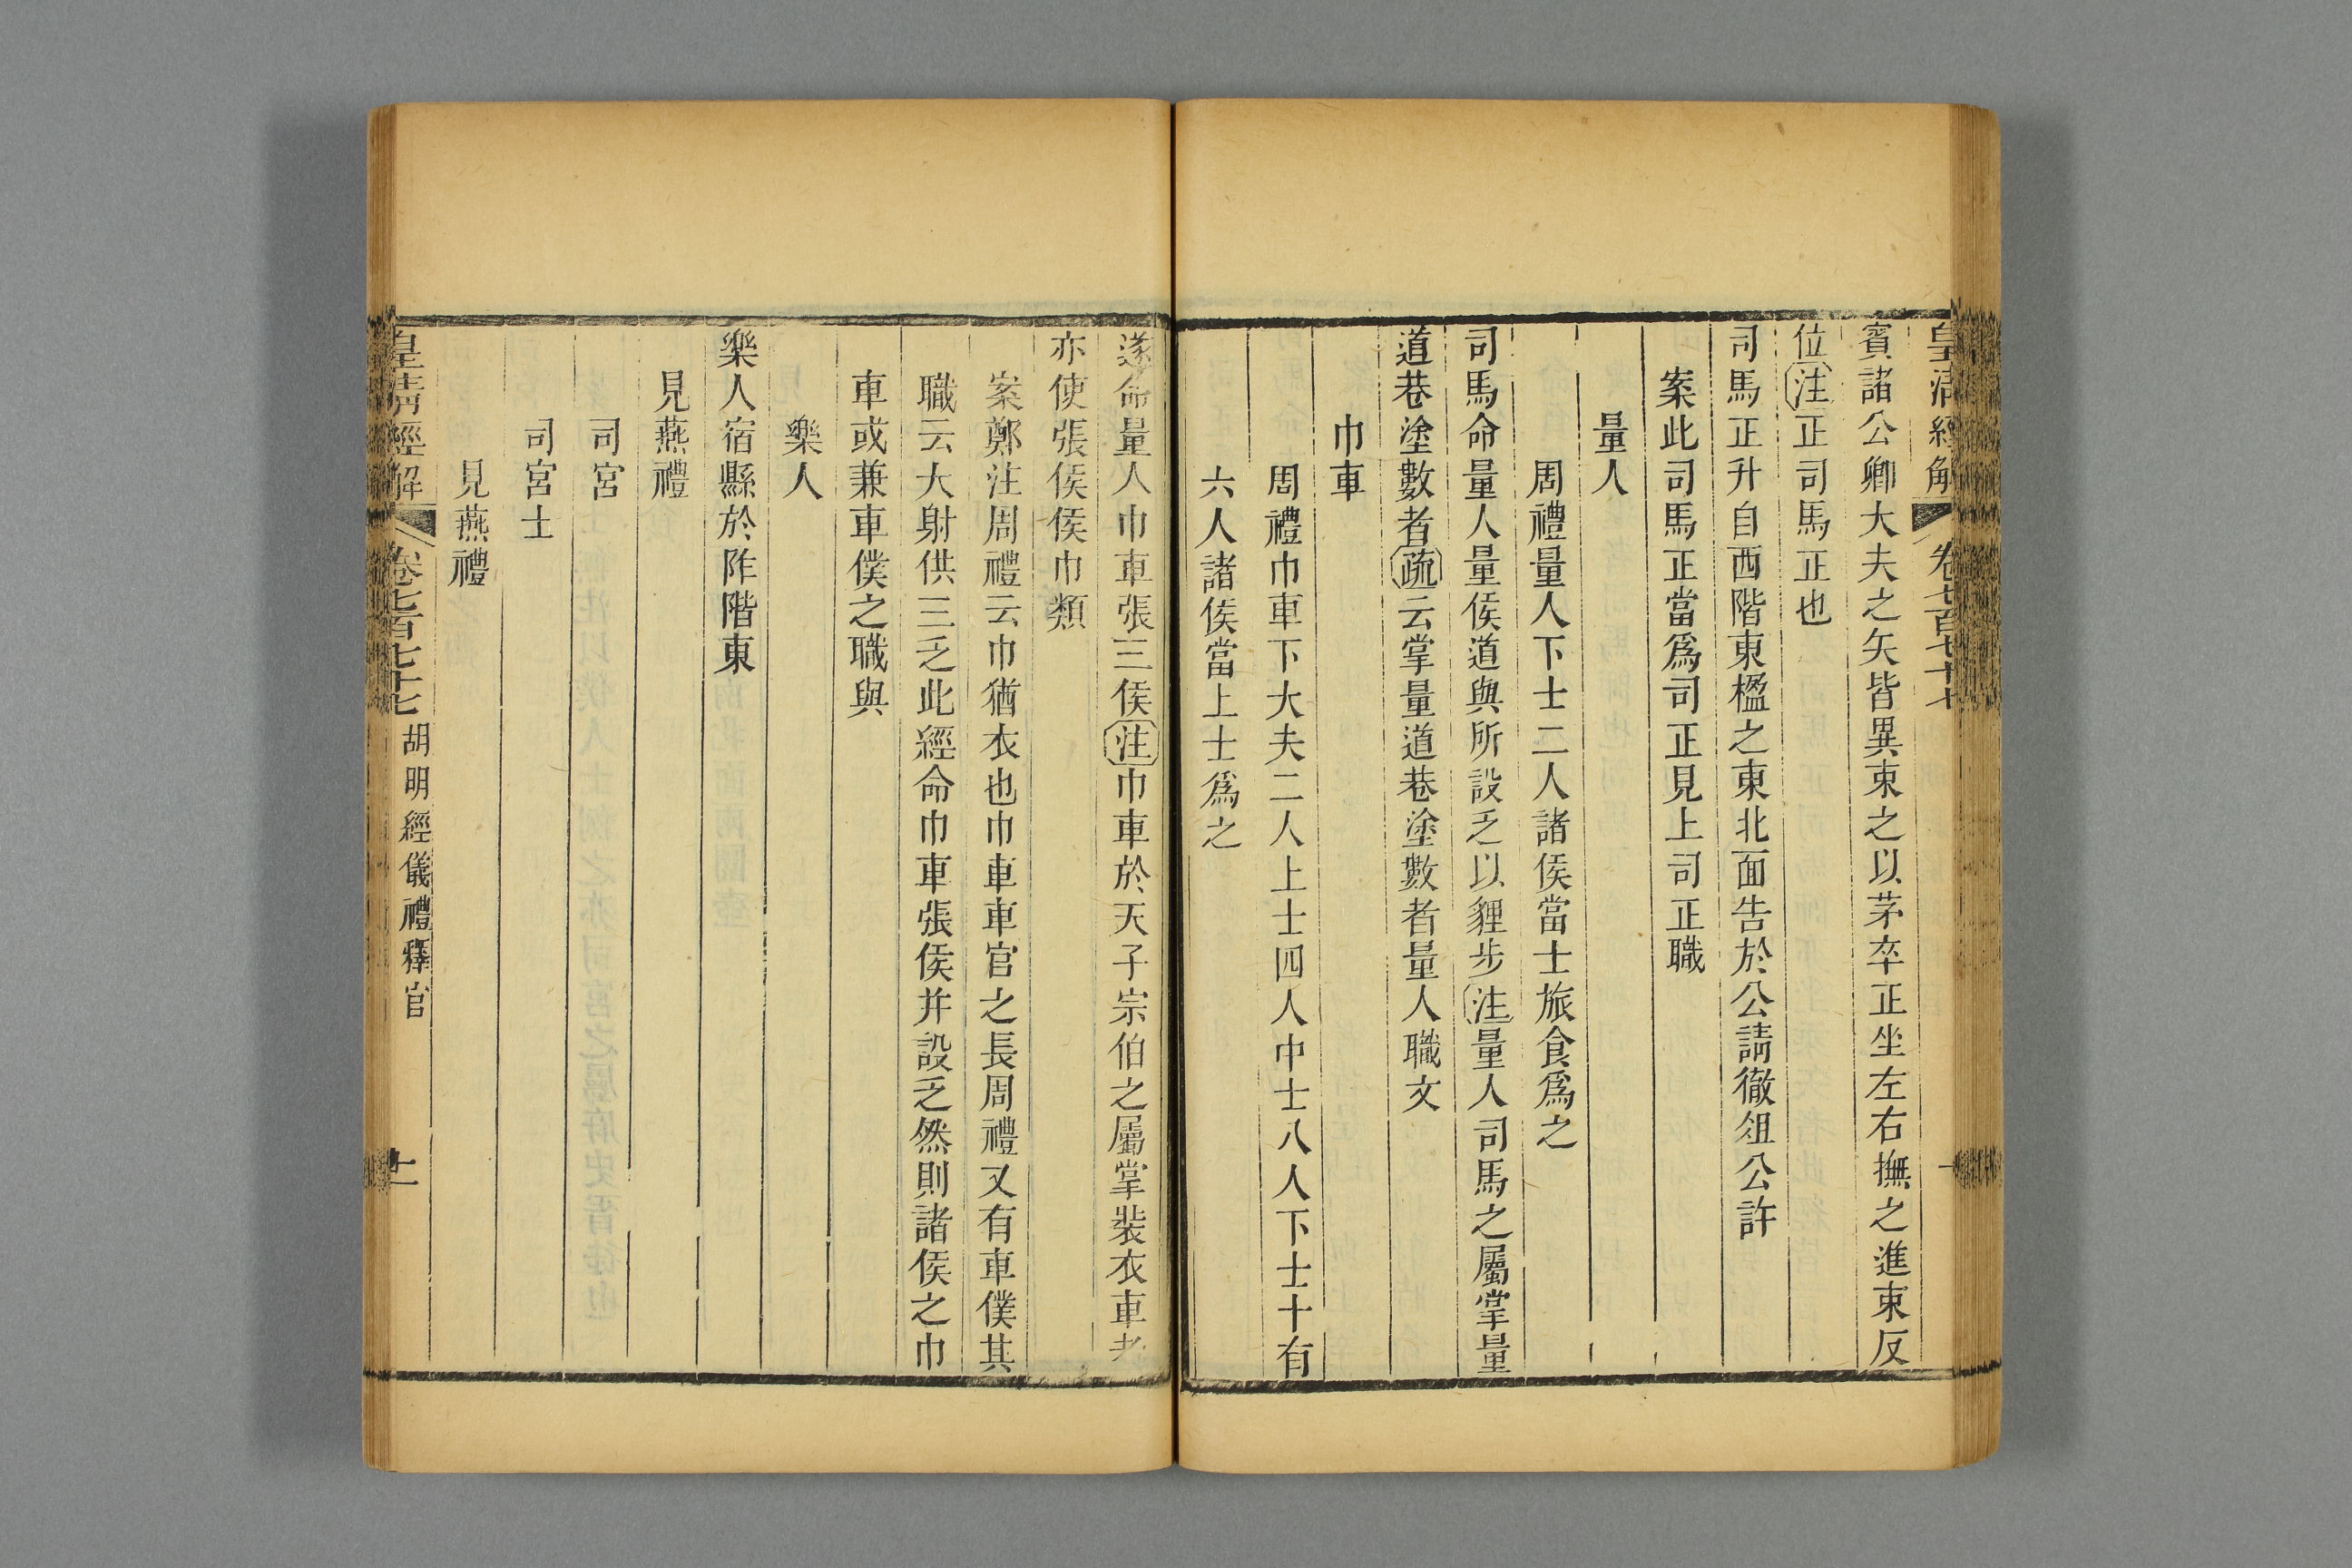 皇清經解 卷七百七十七
賓諸公卿大夫之矢皆異束之以茅卒正坐左右撫之進束反
位注正司馬正也
司馬正升自西階東楹之東北面告於公請徹俎公許
案此司馬正當爲司正見上司正職
量人
周禮量人下士二人諸侯當士旅食爲之
司馬命量人量侯道與所設乏以貍步注量人司馬之屬掌量
道巷塗數者疏云掌量道巷塗數者量人職文
巾車
周禮巾車下大夫二人上士四人中士八人下士十有
六人諸侯當上士爲之
遂命量人巾車張三侯注巾車於天子宗伯之屬掌裝衣車者
亦使張侯侯巾類
案鄭注周禮云巾猶衣也巾車車官之長周禮又有車僕其
職云大射供三乏此經命巾車張侯并設乏然則諸侯之巾
車或兼車僕之職與
樂人
樂人宿縣於阼階東
見燕禮
司宮
司宮士
見燕禮
皇清經解 卷七百七十七 胡明經儀禮釋官 十一